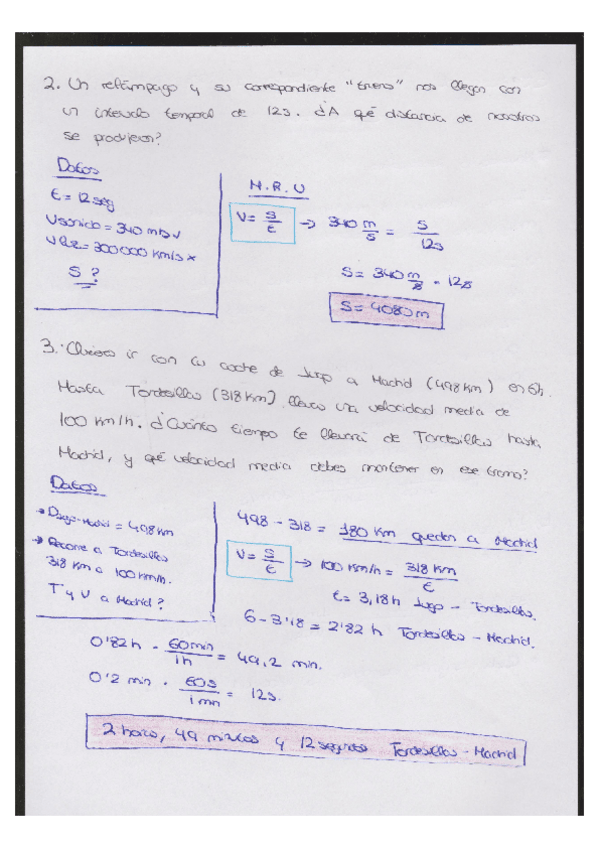 2. Un relámpago y su correspondiente "trueno" nos llegan con
un intervalo temporal de 12s. ¿A qué distancia de nosotros
se produjeron?
Datos
t = 12 seg
Vsonido = 340 m/s ✓
VLuz = 300000 Km/s x
S ?
M.R.U
V = S/t → 340 m/s = S/12s
S = 340 m/s · 12s
S = 4080 m
3. Quieres ir con tu coche de Lugo a Madrid (498 Km) en 6h.
Hasta Tordesillas (318 Km) llevas una velocidad media de
100 Km/h. ¿Cuánto tiempo te llevará de Tordesillas hasta
Madrid, y qué velocidad media debes mantener en ese tramo?
Datos
→ Lugo-Madrid = 498 Km
→ Recorre a Tordesillas
318 Km a 100 Km/h.
T y V a Madrid?
498 - 318 = 180 Km quedan a Madrid
V = S/t → 100 Km/h = 318 Km/t
t = 3,18h Lugo - Tordesillas.
6 - 3'18 = 2'82 h Tordesillas - Madrid.
0'82 h · 60 min/1h = 49,2 min.
0'2 min · 60s/1 min = 12s.
2 horas, 49 minutos y 12 segundos Tordesillas - Madrid